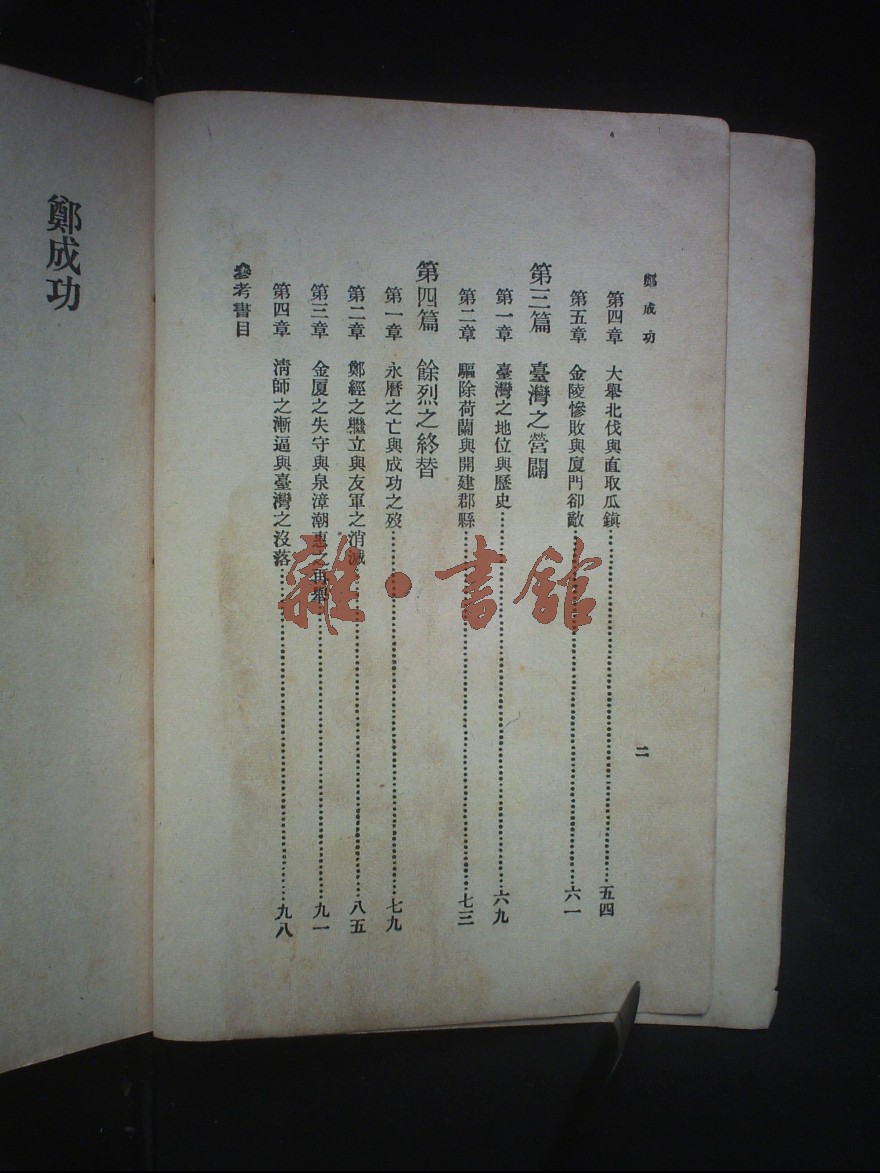 鄭成功
二
第四章 大舉北伐與直取瓜鎮 五四
第五章 金陵慘敗與厦門卻敵 六一
第三篇 臺灣之營闢
第一章 臺灣之地位與歷史 六九
第二章 驅除荷蘭與開建郡縣 七三
第四篇 餘烈之終替
第一章 永曆之亡與成功之歿 七九
第二章 鄭經之繼立與友軍之消滅 八五
第三章 金厦之失守與泉漳潮惠之再舉 九一
第四章 清師之漸逼與臺灣之沒落 九八
參考書目
鄭成功
雜·書館